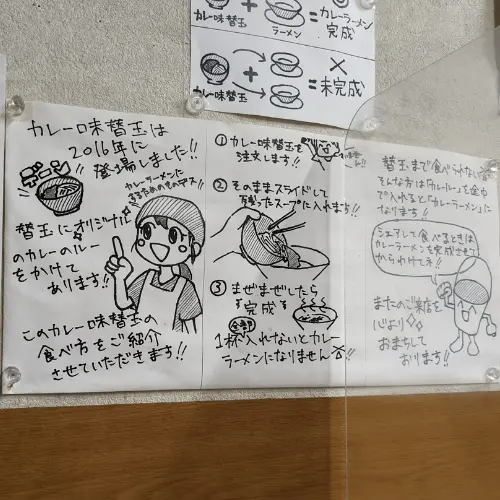 カレー味替玉
+
ラーメン
=
カレーラーメン
完成
カレー味替玉
+
=
×
未完成
カレー味替玉は
2016年に
登場しました!!
カレーラーメンに
するためのものデス!!
替玉にオリジナル
のカレーのルー
をかけて
あります!!
このカレー味替玉の
食べ方をご紹介
させていただきます!!
① カレー味替玉を
注文します!!
② そのままスライドして
残ったスープに入れます!!
③ まぜまぜしたら
完成
全部
1杯入れないとカレー
ラーメンになりません
替玉まで食べられない
そんな方は「カレールー」を途中
で入れると「カレーラーメン」に
なります!!
シェアして食べるときは
カレーラーメンを完成させて
からわけてネ!!
またのご来店を
心より
おまちして
おります!!